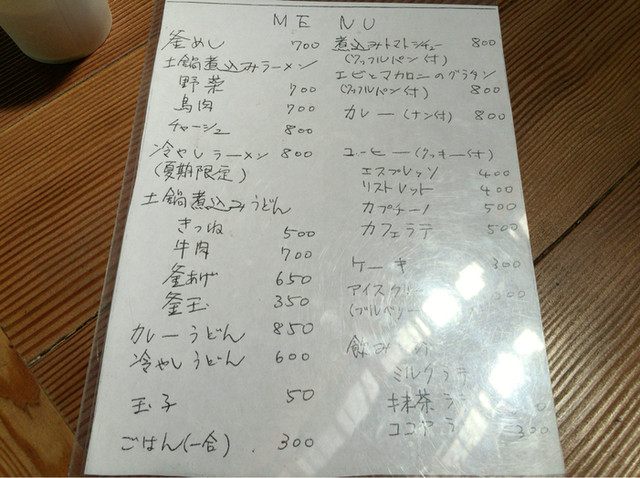 MENU
釜めし 700
土鍋煮込みラーメン
野菜 700
鳥肉 700
チャーシュー 800
冷やしラーメン 800
(夏期限定)
土鍋煮込みうどん
きつね 500
牛肉 700
釜あげ 650
釜玉 350
カレーうどん 850
冷やしうどん 600
玉子 50
ごはん(一合) 300
煮込みトマトシチュー 800
(ワッフルパン付)
エビとマカロニのグラタン
(ワッフルパン付) 800
カレー(ナン付) 800
コーヒー(クッキー付)
エスプレッソ 400
リストレット 400
カプチーノ 500
カフェラテ 500
ケーキ 300
アイスクリー
(ブルベリー
飲み
ミルクラテ
抹茶ラテ
ココア 300